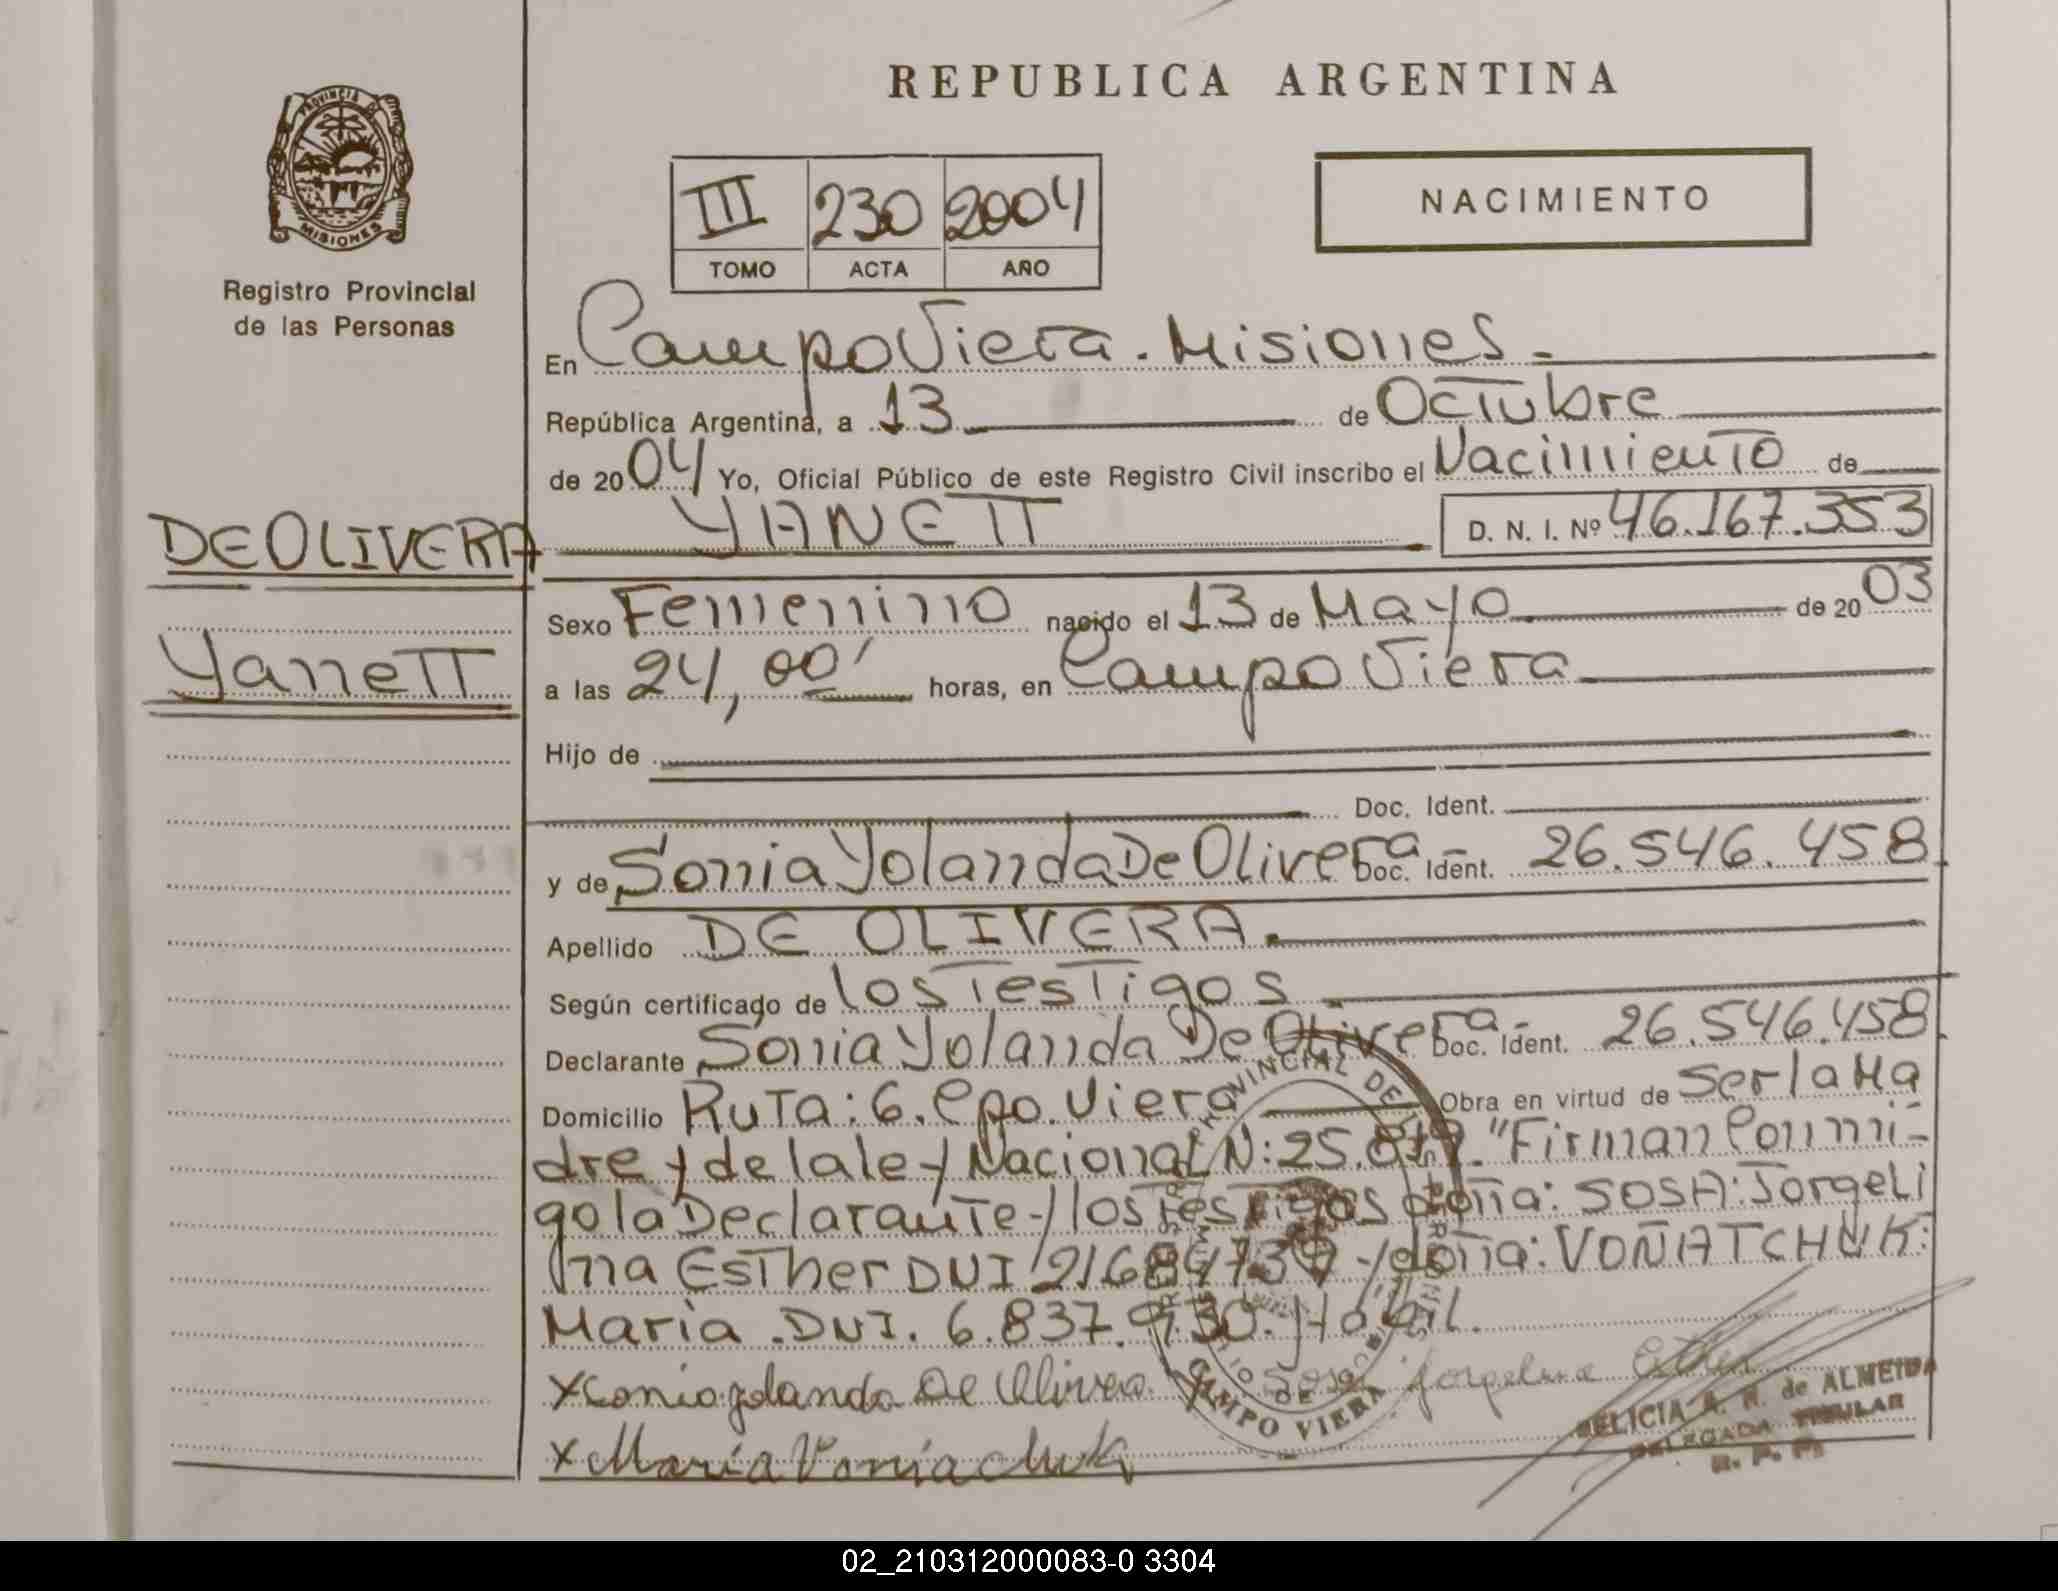 REPUBLICA ARGENTINA
PROVINCIA DE
MISIONES
Registro Provincial
de las Personas
III 230 2004
TOMO ACTA AÑO
NACIMIENTO
En Campo Viera. Misiones.-
República Argentina, a 13 de Octubre
de 2004 Yo, Oficial Público de este Registro Civil inscribo el Nacimiento de
DE OLIVERA YANETT D. N. I. Nº 46.167.353
Sexo Femenino nacido el 13 de Mayo de 2003
Yanett
a las 24,00' horas, en Campo Viera
Hijo de
Doc. Ident.
y de Sonia Yolanda De Olivera.- Doc. Ident. 26.546.458.
Apellido DE OLIVERA.
Según certificado de los Testigos
Declarante Sonia Yolanda De Olivera.- Doc. Ident. 26.546.458.
Domicilio Ruta: 6. Cpo. Viera Obra en virtud de Ser la Ma
dre y de la ley Nacional N: 25.819. "Firman Conmi-
go la Declarante y los Testigos doña: SOSA: Jorgeli
na Esther DNI y doña: VOÑATCHUK:
Maria. DNI. 6.837.930. Hábil.
x Sonia yolanda De Olivera Sosa Jorgelina Esther
x Maria Voniachuk
CAMPO VIERA
DELICIA A. R. de ALMEIDA
DELEGADA TITULAR
R. P. P.
02_210312000083-0 3304